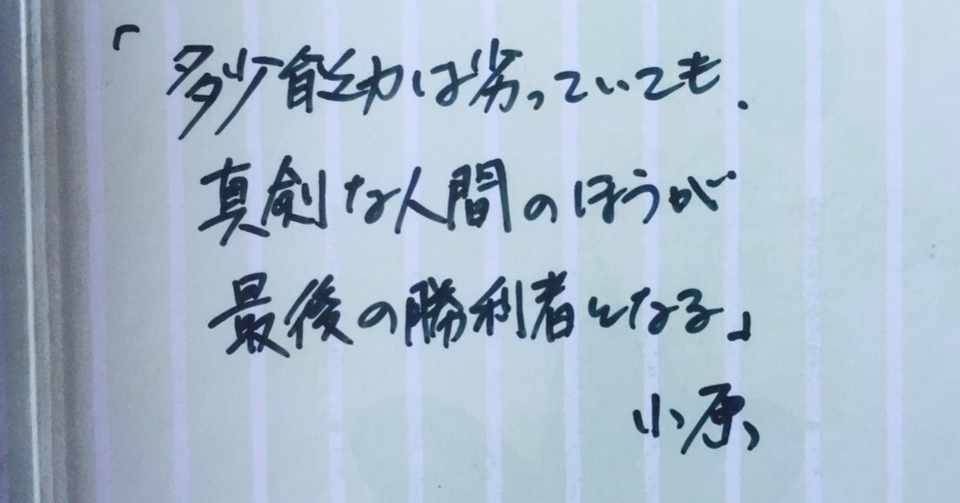 「多少能力は劣っていても、
真剣な人間のほうが
最後の勝利者となる」
小原